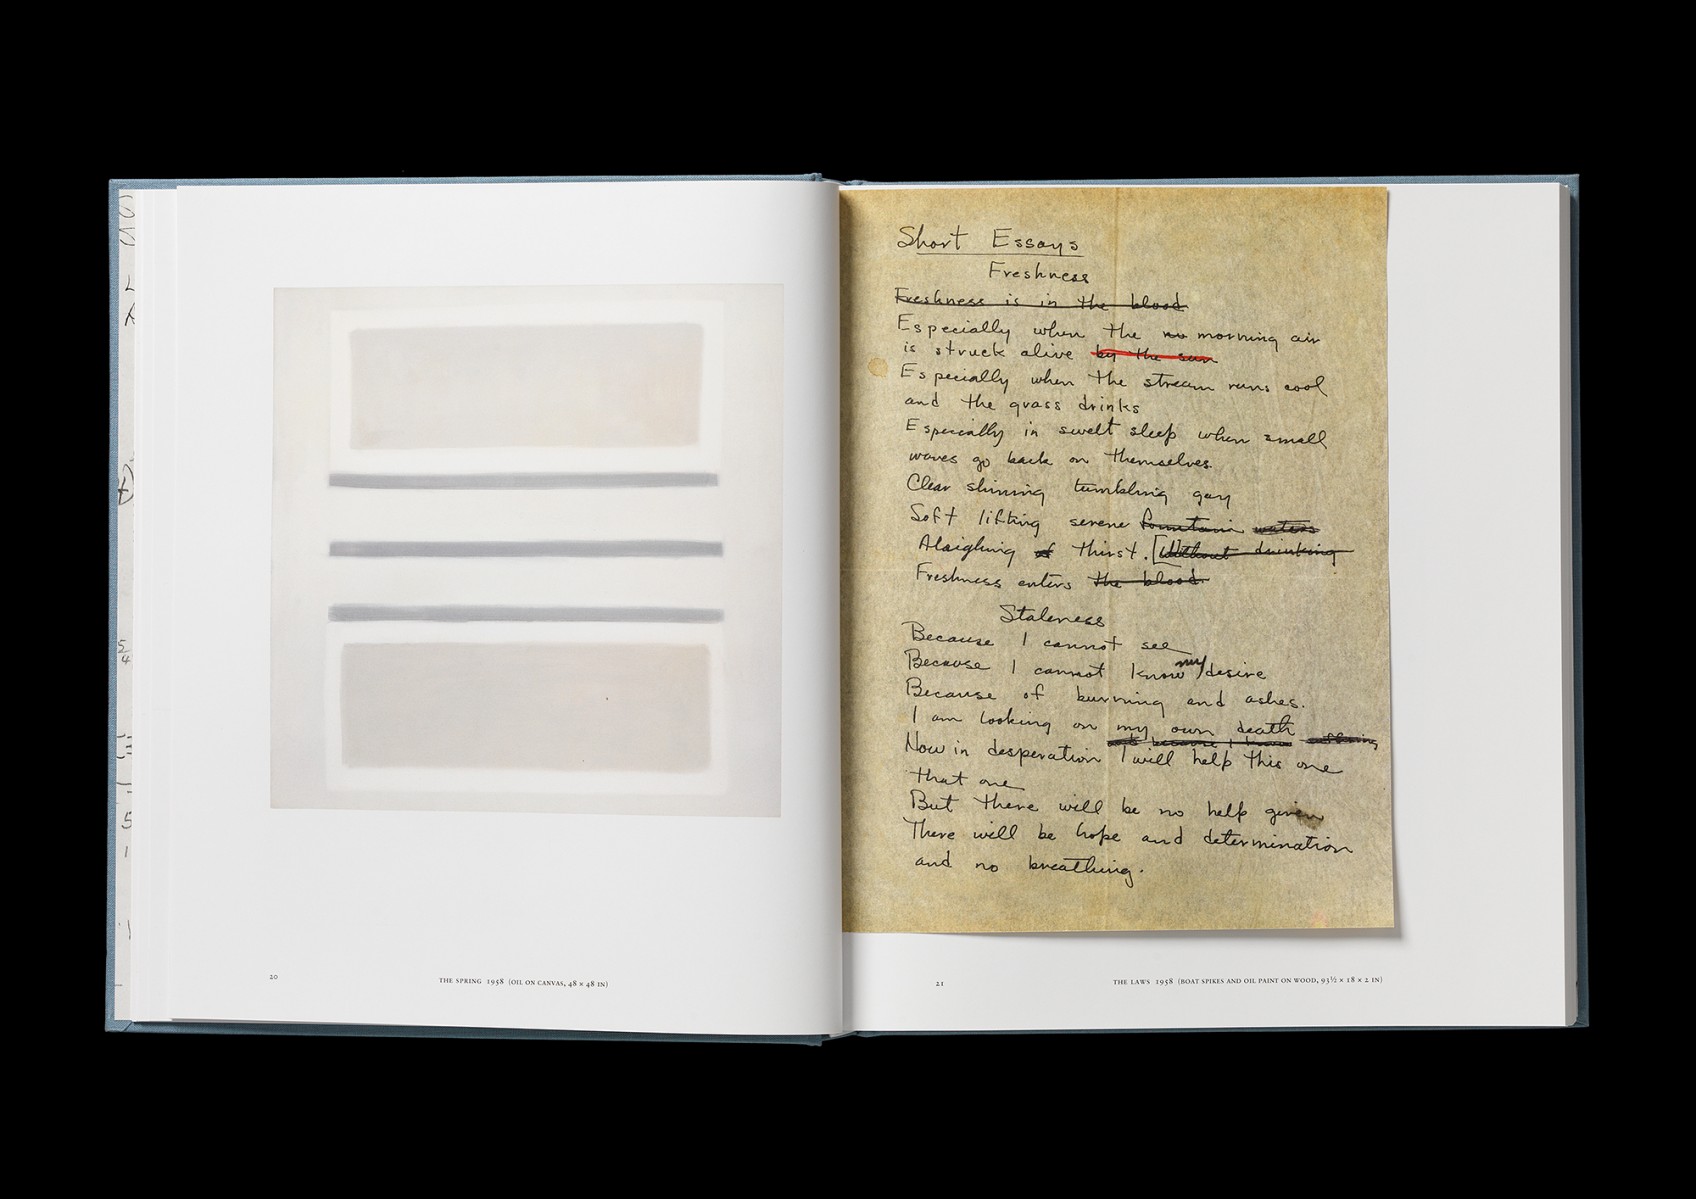 20
THE SPRING 1958 (OIL ON CANVAS, 48 × 48 IN)
Short Essays
Freshness
Freshness is in the blood
Especially when the no morning air
is struck alive by the sun
Especially when the stream runs cool
and the grass drinks
Especially in swelt sleep when small
waves go back on themselves.
Clear shining tumbling gay
Soft lifting serene fountain waters
thirst. [Without drinking
Freshness enters the blood.
Staleness
Because I cannot see
Because I cannot know my desire
Because of burning and ashes.
I am looking on my own death suffering
and because I know
Now in desperation I will help this one
that one
But there will be no help given
There will be hope and determination
and no breathing.
21
THE LAWS 1958 (BOAT SPIKES AND OIL PAINT ON WOOD, 93½ × 18 × 2 IN)